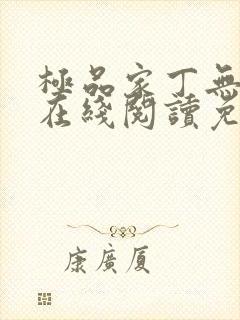 極品家丁無
在綫閱讀免
康廣厦